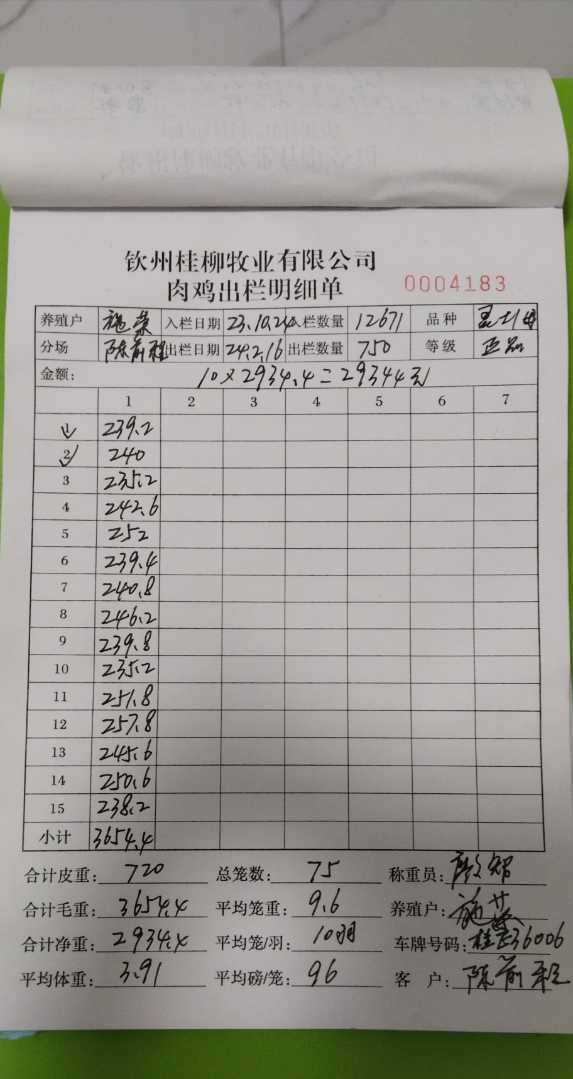 钦州桂柳牧业有限公司
肉鸡出栏明细单 0004183
养殖户 施荣 入栏日期 23.10.24 入栏数量 12671 品种
分场 陈前程 出栏日期 24.2.16 出栏数量 750 等级 正品
金额: 10×2934.4=29344元
1 2 3 4 5 6 7
1 239.2
2 240
3 235.2
4 242.6
5 252
6 239.4
7 240.8
8 246.2
9 239.8
10 235.2
11 251.8
12 257.8
13 245.6
14 250.6
15 238.2
小计 3654.4
合计皮重: 720 总笼数: 75 称重员:
合计毛重: 3654.4 平均笼重: 9.6 养殖户: 施荣
合计净重: 2934.4 平均笼/羽: 10羽 车牌号码: 36006
平均体重: 3.91 平均磅/笼: 96 客 户: 陈前程